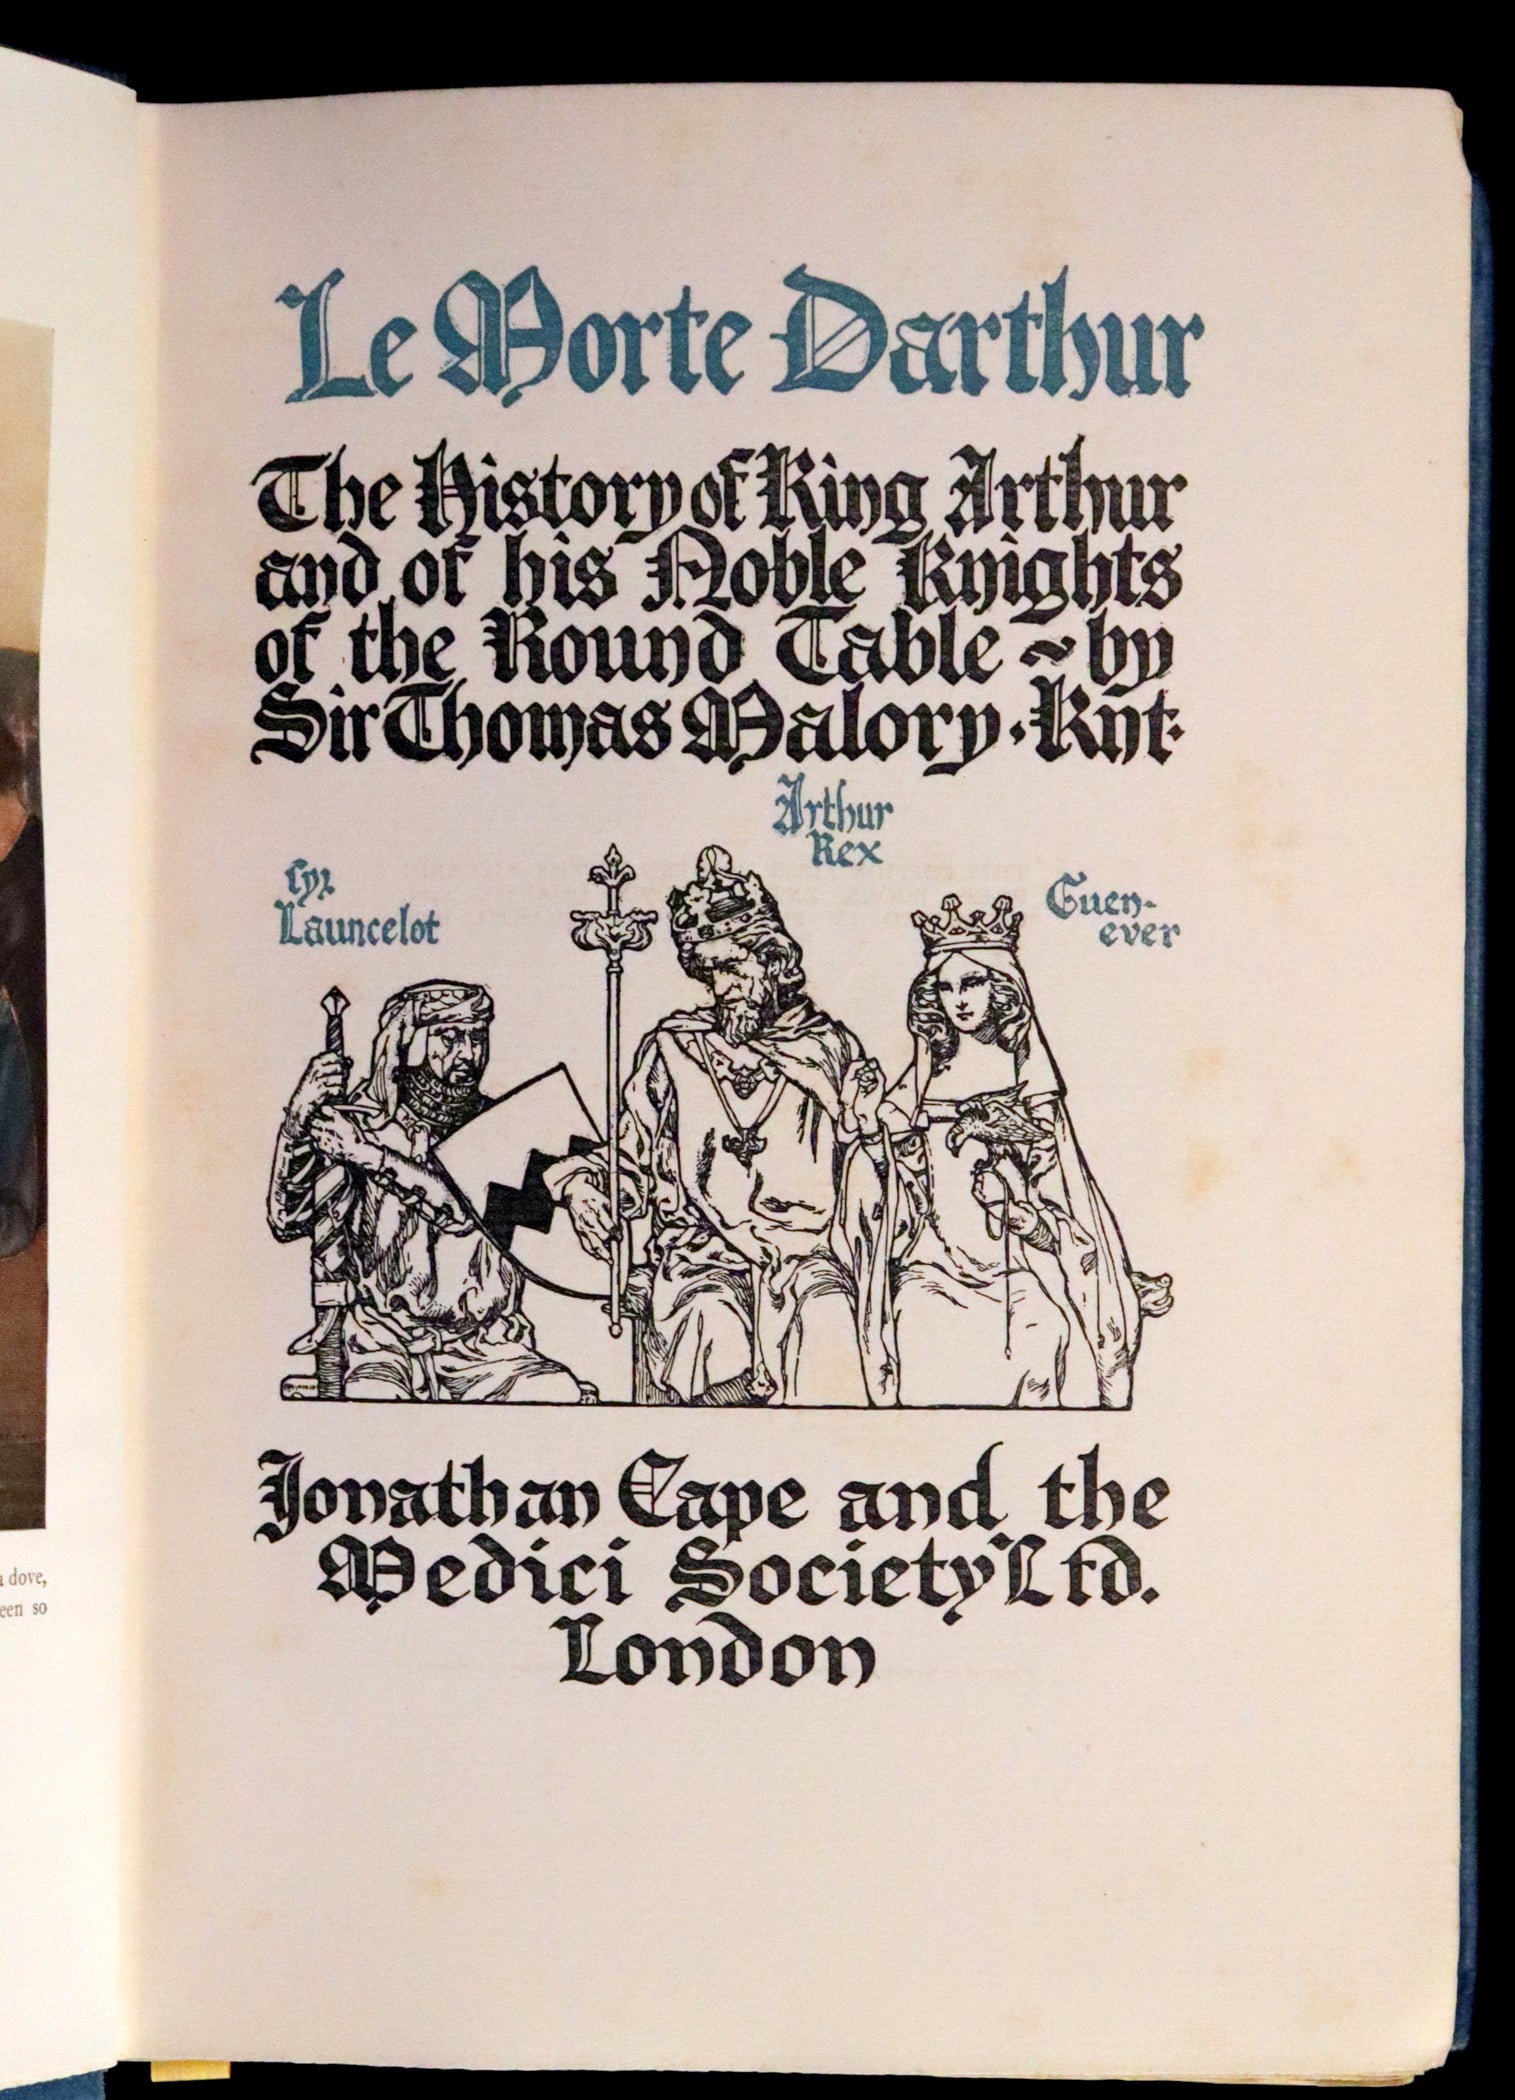 Le Morte Darthur
The History of King Arthur
and of his Noble Knights
of the Round Table ~ by
Sir Thomas Malory · Knt ·
Arthur
Rex
Syr
Launcelot
Guen-
ever
Jonathan Cape and the
Medici Society Ltd.
London
a dove,
een so